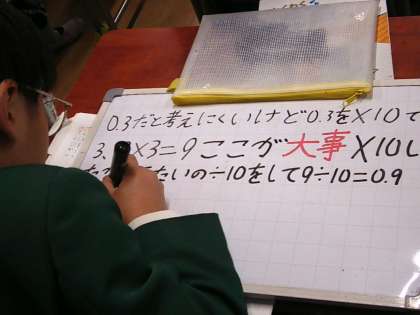 0.3だと考えにくいけど0.3を×10で
3. ×3=9ここが大事×10し
たいの÷10をして9÷10=0.9